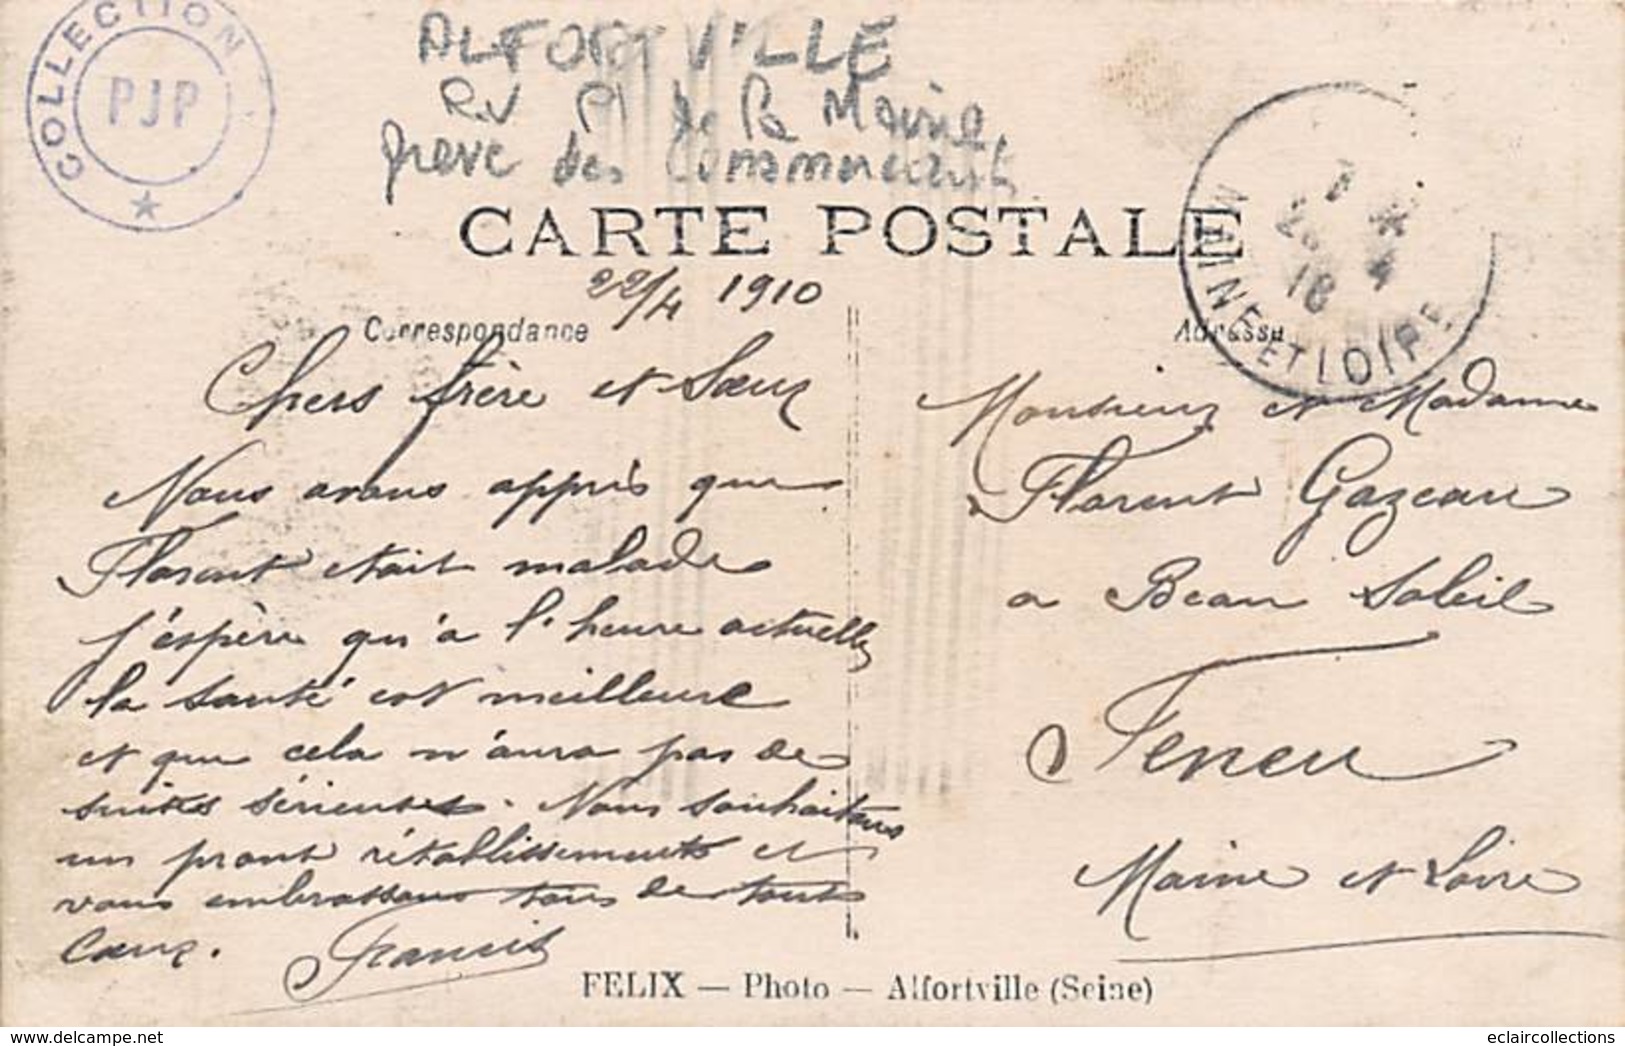 COLLECTION
PJP
ALFORTVILLE
R.V Pl de la Mairie
greve des commercants
CARTE POSTALE
22/4 1910
Correspondance
Adresse
MAINE ET LOIRE
Chers frère et Sœur
Nous avons appris que
Florent était malade
j'espère qu'a l'heure actuelle
la santé est meilleure
et que cela n'aura pas de
suites sérieuses. Nous souhaitons
un pront rétablissements et
vous embrassons tous de tout
Cœur. Francis
Monsieur et Madame
Florent Gazeau
a Beau Soleil
Feneu
Maine et Loire
FELIX — Photo — Alfortville (Seine)
www.delcampe.net
eclaircollections